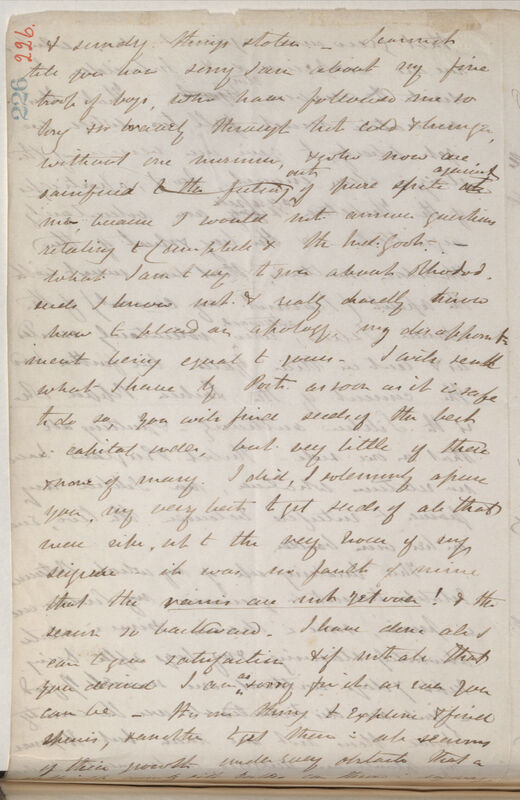 226.
226
& sundry things stolen — I cannot
tell you how sorry I am about my fine
troop of boys, who have followed me so
long so bravely through heat cold & hunger,
without one murmur, & who now are
sacrificed out of pure spite against
me, because I would not answer questions
relating to Campbell & the Indi. Govt. —
What I am to say to you about Rhodod.
seeds I know not & really hardly know
how to plead an apology, my disappoint
ment being equal to yours — I will send
what I have by Post as soon as it is safe
to do so, you will find seeds of the best
& capital order, but very little of these
& none of many. I did, I solemnly assure
you, my very best to get seeds of all that
were ripe, up to the very hour of my
seizure it was no fault of mine
that the rains are not yet over! & the
season so backward. I have done all I
can to give satisfaction & if not all that
you desired I am as sorry for it as ever you
can be — It is one thing to explore & find
species, & another to get them in all seasons
of their growth under every obstacle that a